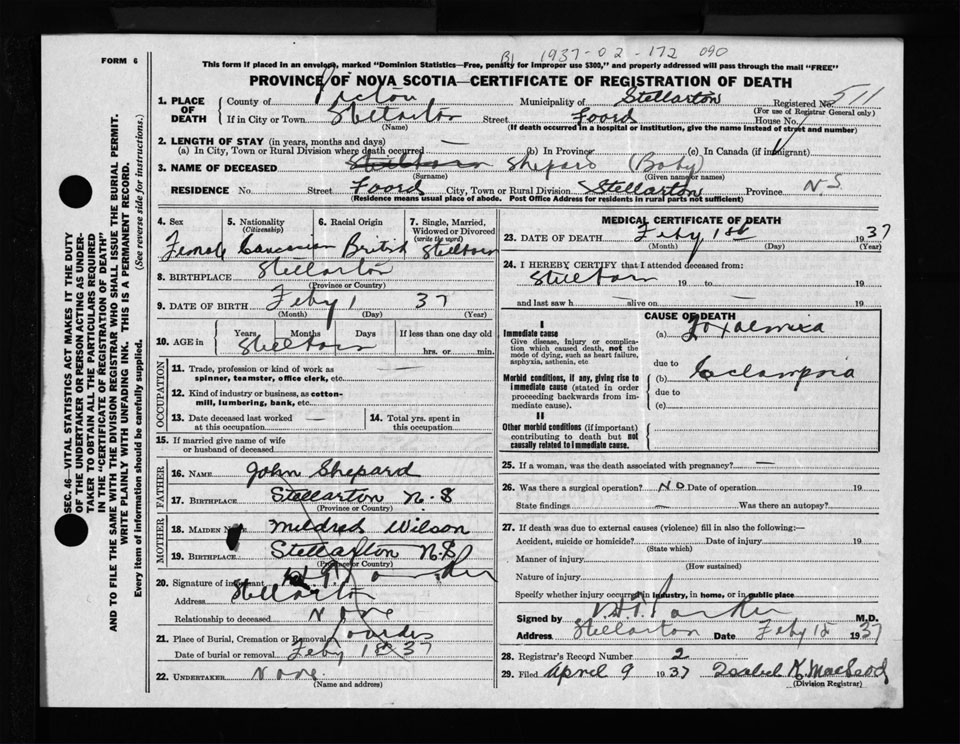 1937-02-172 090
FORM 6
This form if placed in an envelope, marked "Dominion Statistics—Free, penalty for improper use $300," and properly addressed will pass through the mail "FREE"
PROVINCE OF NOVA SCOTIA—CERTIFICATE OF REGISTRATION OF DEATH
1. PLACE OF DEATH
County of Pictou Municipality of Stellarton Registered No. 511
(For use of Registrar General only)
If in City or Town Stellarton Street Foord House No.
(Name) (If death occurred in a hospital or institution, give the name instead of street and number)
2. LENGTH OF STAY (in years, months and days)
(a) In City, Town or Rural Division where death occurred — (b) In Province (c) In Canada (if immigrant)
3. NAME OF DECEASED Stillborn Shepard (Baby)
(Surname) (Given name or names)
RESIDENCE No. Street Foord City, Town or Rural Division Stellarton Province N.S.
(Residence means usual place of abode. Post Office Address for residents in rural parts not sufficient)
4. Sex Female
5. Nationality (Citizenship) Caucasian
6. Racial Origin British
7. Single, Married, Widowed or Divorced (write the word) Stillborn
8. BIRTHPLACE Stellarton
(Province or Country)
9. DATE OF BIRTH Feby 1 37
(Month) (Day) (Year)
10. AGE in Years Months Days If less than one day old
Stillborn hrs. or min.
OCCUPATION
11. Trade, profession or kind of work as spinner, teamster, office clerk, etc.
12. Kind of industry or business, as cotton-mill, lumbering, bank, etc.
13. Date deceased last worked at this occupation —
14. Total yrs. spent in this occupation
15. If married give name of wife or husband of deceased
FATHER
16. NAME John Shepard
17. BIRTHPLACE Stellarton N.S
(Province or Country)
MOTHER
18. MAIDEN NAME Mildred Wilson
19. BIRTHPLACE Stellarton N.S
(Province or Country)
20. Signature of informant Parker
Address Stellarton
Relationship to deceased None
21. Place of Burial, Cremation or Removal Lourdes
Date of burial or removal Feby 1 1937
22. UNDERTAKER None
(Name and address)
MEDICAL CERTIFICATE OF DEATH
23. DATE OF DEATH Feby 1st 1937
(Month) (Day) (Year)
24. I HEREBY CERTIFY that I attended deceased from:
Stillborn 19 to 19
and last saw h — alive on — 19
CAUSE OF DEATH
I
Immediate cause
Give disease, injury or complication which caused death, not the mode of dying, such as heart failure, asphyxia, asthenia, etc
(a) Toxaemia
due to
Morbid conditions, if any, giving rise to immediate cause (stated in order proceeding backwards from immediate cause).
(b) Eclampsia
due to
(c)
II
Other morbid conditions (if important) contributing to death but not causally related to immediate cause.
25. If a woman, was the death associated with pregnancy? —
26. Was there a surgical operation? NO Date of operation 19
State findings — Was there an autopsy?
27. If death was due to external causes (violence) fill in also the following:—
Accident, suicide or homicide? Date of injury 19
(State which)
Manner of injury
(How sustained)
Nature of injury
Specify whether injury occurred in industry, in home, or in public place
Signed by Parker M.D.
Address Stellarton Date Feby 1937
28. Registrar's Record Number 2
29. Filed April 9 1937 Isabel K. MacLeod
(Division Registrar)
SEC. 46—VITAL STATISTICS ACT MAKES IT THE DUTY
OF THE UNDERTAKER OR PERSON ACTING AS UNDERTAKER TO OBTAIN ALL THE PARTICULARS REQUIRED
IN THE "CERTIFICATE OF REGISTRATION OF DEATH"
AND TO FILE THE SAME WITH THE DIVISION REGISTRAR WHO SHALL ISSUE THE BURIAL PERMIT.
WRITE PLAINLY WITH UNFADING INK. THIS IS A PERMANENT RECORD.
Every item of information should be carefully supplied. (See reverse side for instructions.)